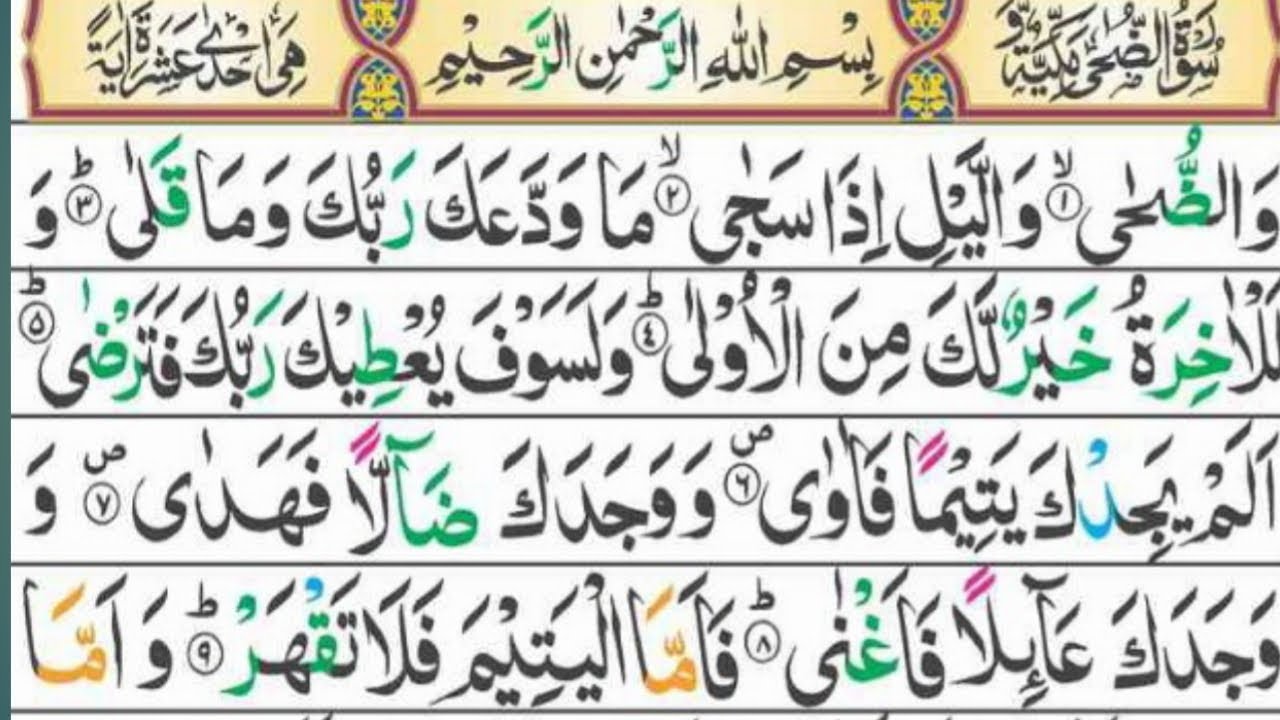 سُوْرَةُ الضُّحٰى مَكِّيَّةٌ وَّ بِسْمِ اللهِ الرَّحْمٰنِ الرَّحِيْمِ هِىَ اِحْدٰى عَشْرَةَ اٰيَةً
وَالضُّحٰى ۙ﴿۱﴾ وَالَّيْلِ اِذَا سَجٰى ۙ﴿۲﴾ مَا وَدَّعَكَ رَبُّكَ وَمَا قَلٰى ؕ﴿۳﴾ وَ
لَلْاٰخِرَةُ خَيْرٌ لَّكَ مِنَ الْاُوْلٰى ؕ﴿۴﴾ وَلَسَوْفَ يُعْطِيْكَ رَبُّكَ فَتَرْضٰى ؕ﴿۵﴾
اَلَمْ يَجِدْكَ يَتِيْمًا فَاٰوٰى ۪﴿۶﴾ وَوَجَدَكَ ضَآلًّا فَهَدٰى ۪﴿۷﴾ وَ
وَجَدَكَ عَآئِلًا فَاَغْنٰى ؕ﴿۸﴾ فَاَمَّا الْيَتِيْمَ فَلَا تَقْهَرْ ؕ﴿۹﴾ وَ اَمَّا